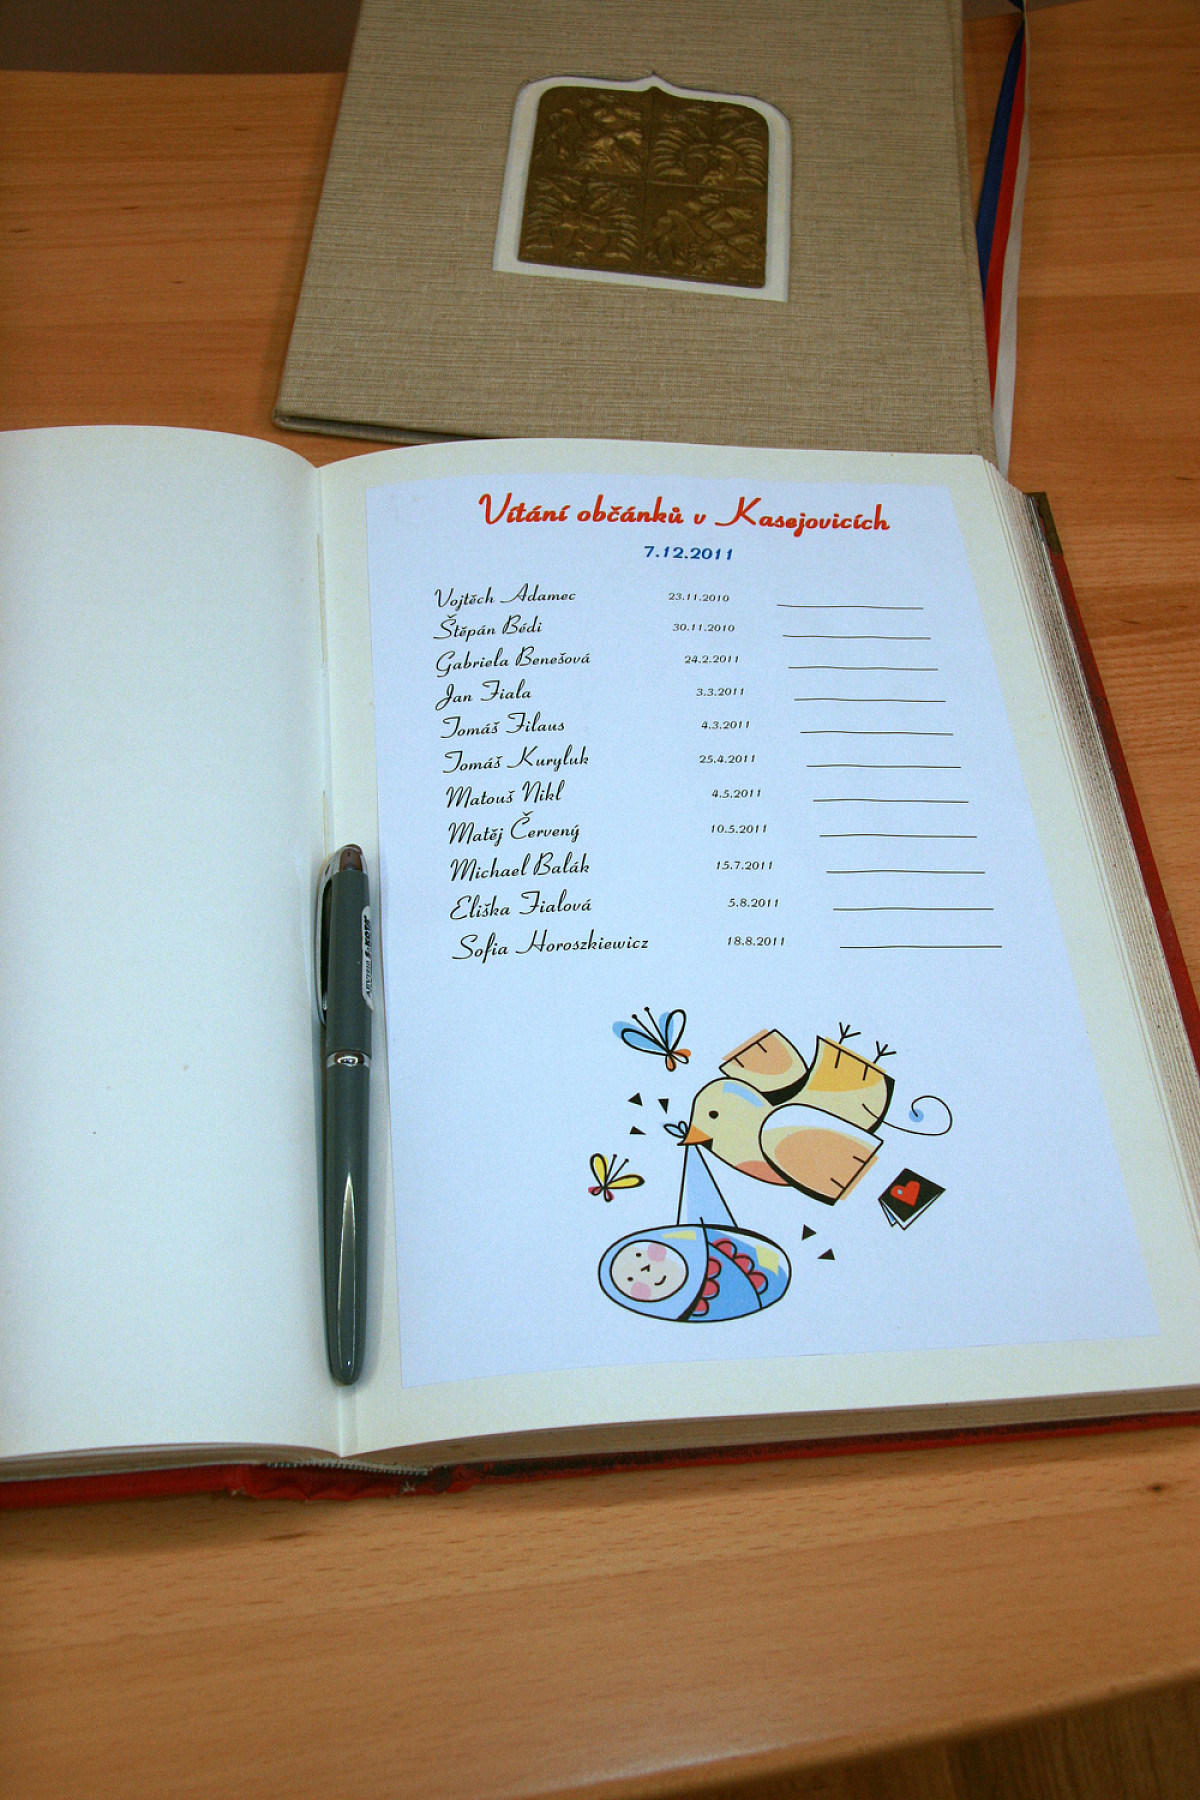 Vítání občánků v Kasejovicích
7.12.2011
Vojtěch Adamec 23.11.2010
Štěpán Bédi 30.11.2010
Gabriela Benešová 24.2.2011
Jan Fiala 3.3.2011
Tomáš Filaus 4.3.2011
Tomáš Kuryluk 25.4.2011
Matouš Nikl 4.5.2011
Matěj Červený 10.5.2011
Michael Balák 15.7.2011
Eliška Fialová 5.8.2011
Sofia Horoszkiewicz 18.8.2011